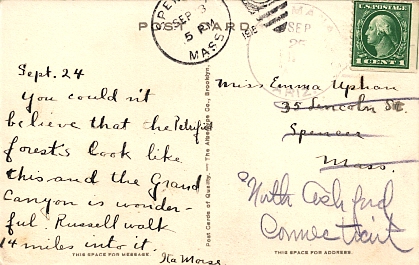 POST CARD.
SPENCER
SEP 3
5 PM
MASS.
SEP
25
U.S. POSTAGE
1 CENT 1
Sept. 24
You couldn't
believe that the Petrified
forests look like
this and the Grand
Canyon is wonder-
ful. Russell walk
14 miles into it.
Ila Morse
THIS SPACE FOR MESSAGE.
Post Cards of Quality. — The Albertype Co., Brooklyn,
Miss Emma Upham
35 Lincoln St.
Spencer
Mass.
North Ashford
Connecticut
THIS SPACE FOR ADDRESS.